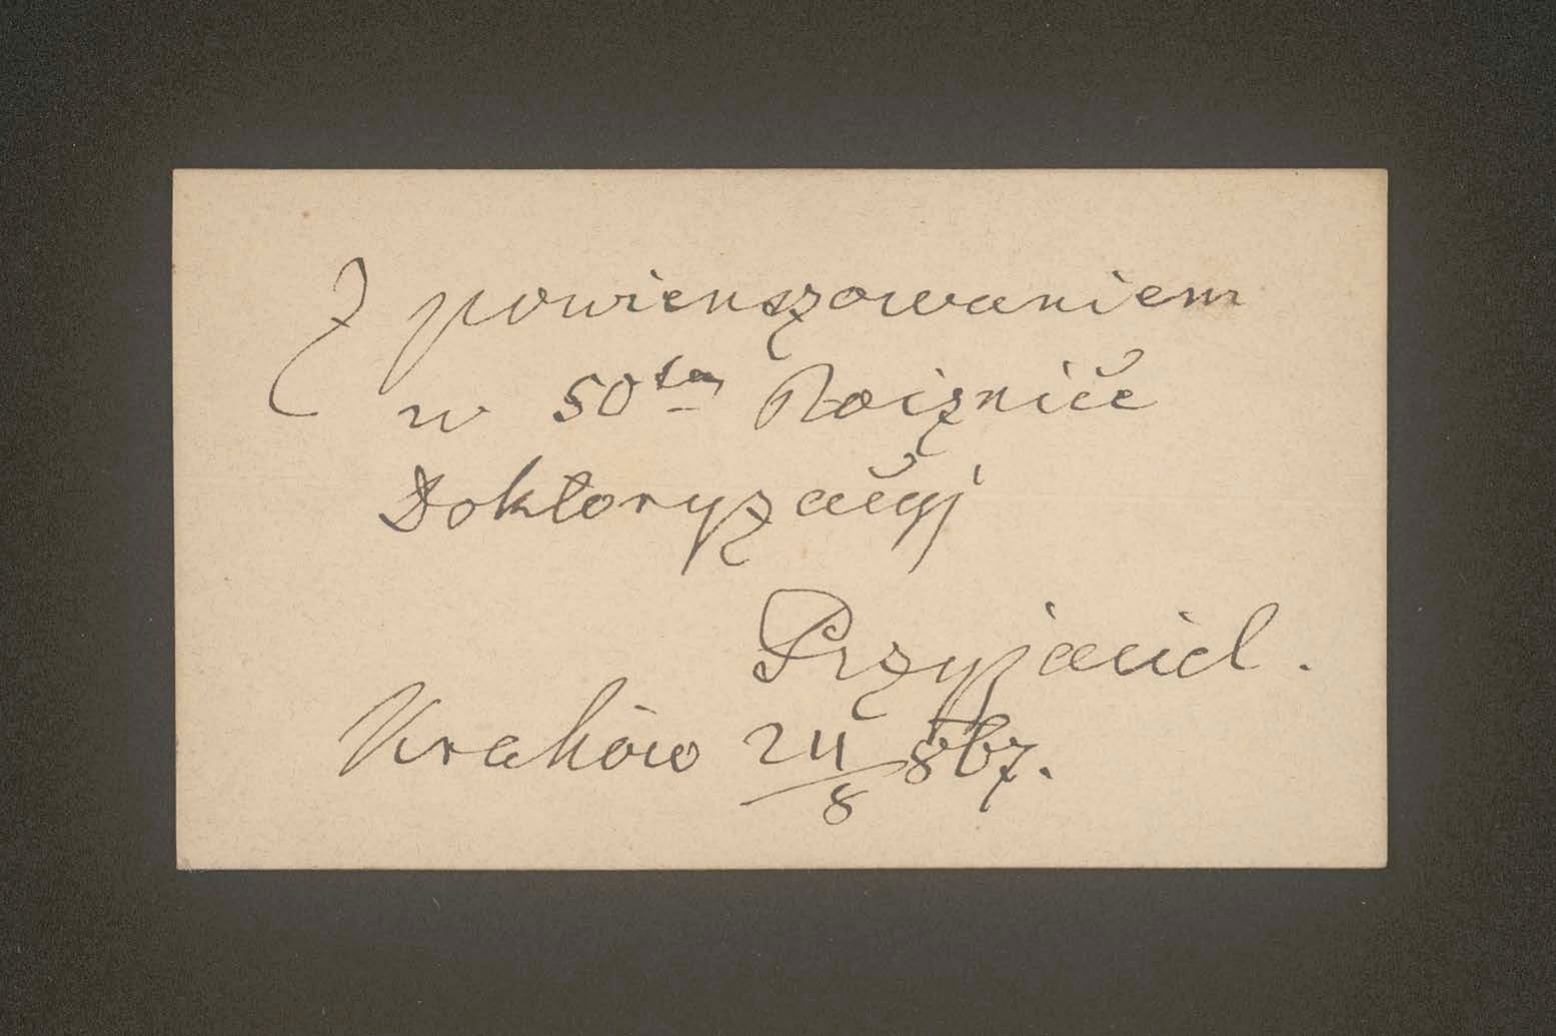 Z powienszowaniem
w 50tą Rocznicę
Doktoryzacyj
Przyjaciel.
Kraków 24/8 867.